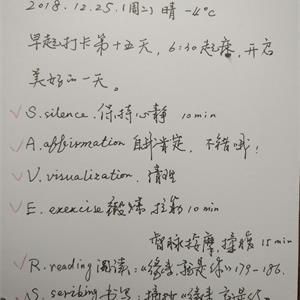 2018.12.25.(周二) 晴 -4℃
早起打卡第十五天, 6:30起床, 开启
美好的一天。
✓ S.silence.保持心静 10min
✓ A.affirmation 自我肯定, 不错哦!
✓ V.visualization. 清理
✓ E. exercise 锻炼 拉筋10min
按摩, 揉腹 15min
✓ R.reading 阅读:《 就是你》179-186.
S. scribing书写: